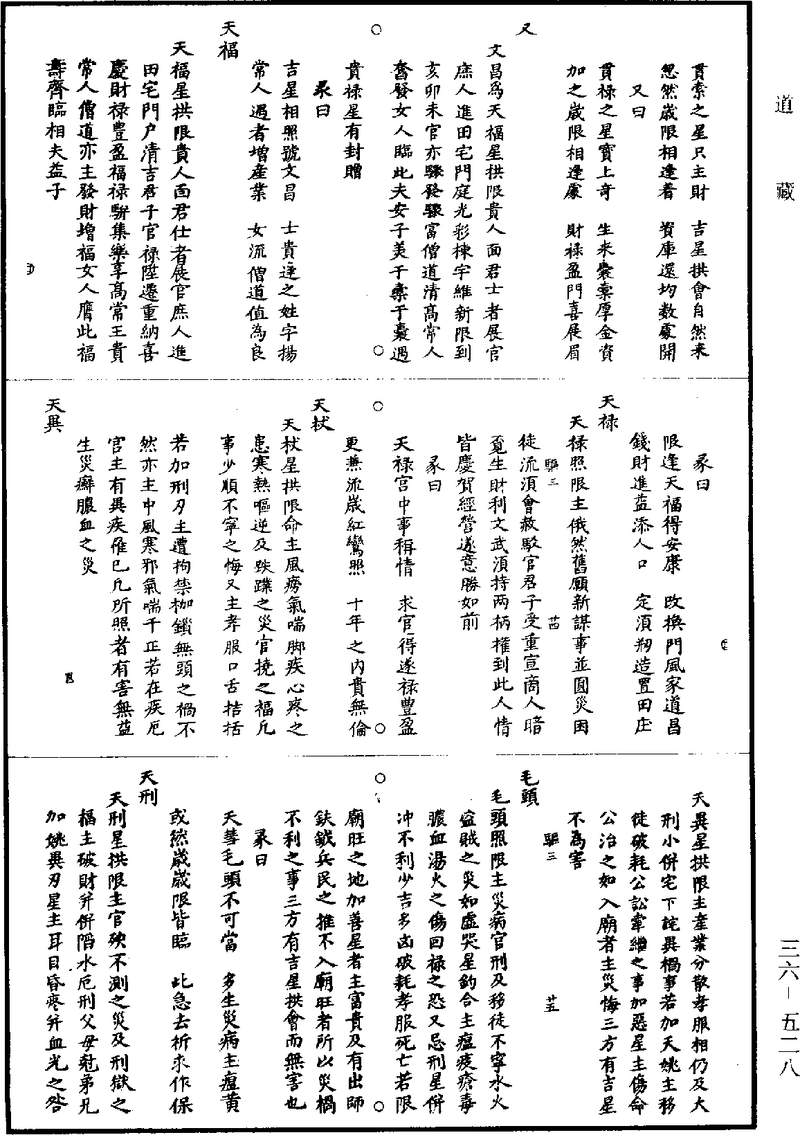 道藏
貫索之星只主財　吉星拱會自然來
忽然歲限相逢着　資庫還均數處開
又曰
貫祿之星實上奇　生來囊橐厚金資
加之歲限相逢處　財祿盈門喜展眉
又
文昌為天福星拱限貴人面君士者展官
庶人進田宅門庭光彩棟宇維新限到
亥卯未官亦驟發驟富僧道清高常人
奮發女人臨此夫安子美于橐于囊遇
貴祿星有封贈
彖曰
吉星相照號文昌　士貴逢之姓字揚
常人遇者增產業　女流僧道值為良
天福
天福星拱限貴人面君仕者展官庶人進
田宅門户清吉君子官祿陞遷重納喜
慶財祿豐盈福祿駢集樂享高常王貴
常人僧道亦主發財增福女人膺此福
壽齊臨相夫益子
彖曰
限逢天福得安康　改換門風家道昌
錢財進益添人口　定須刱造置田庄
天祿
天祿照限主俄然舊願新謀事並圓災困
徒流須會赦駁官君子受重宣商人暗
覔生財利文武須持兩柄權到此人情
皆慶賀經營遂意勝如前
彖曰
天祿宮中事稱情　求官得遂祿豐盈
更兼流歲紅鸞照　十年之內貴無倫
天杖
天杖星拱限命主風癆氣喘脚疾心疼之
患寒熱嘔逆及跌蹼之災官撓之福凡
事少順不寧之悔又主孝服口舌括括
若加刑刃主遭拘禁枷鎖無頭之禍不
然亦主中風寒邪氣喘干正若在疾厄
宮主有異疾虧巳凡所照者有害無益
生災癬膿血之災
天異
天異星拱限主產業分散孝服相仍及大
刑小併宅下詫異禍事若加天姚主移
徒破耗公訟牽纏之事加惡星主傷命
公治之如入廟者主災悔三方有吉星
不為害
毛頭
毛頭照限主災病官刑及移徒不寧水火
盜賊之災如虛哭星鈞合主瘟疫瘡毒
膿血湯火之傷回祿之恐又忌刑星併
冲不利少吉多凶破耗孝服死亡若限
廟旺之地加善星者主富貴及有出師
鈇鉞兵民之推不入廟旺者所以災禍
不利之事三方有吉星拱會而無害也
彖曰
天彗毛頭不可當　多生災病主瘟黄
或然歲歲限皆臨　此急去祈求作保
天刑
天刑星拱限主官殃不測之災及刑獄之
福主破財并併陷水厄刑父母尅弟兄
加姚異刃星主耳目昏疼并血光之咎
驅三
驅三
三六－五二八